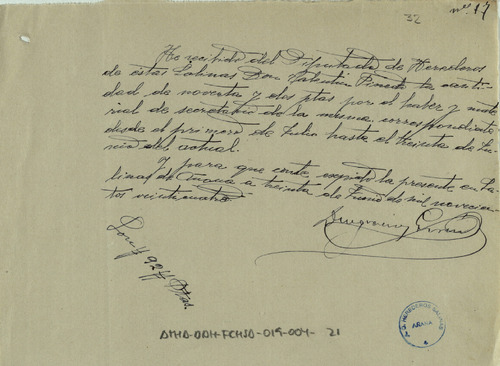 nº 17
32
He recibido del Diputado de Herederos
de estas Salinas Don Valentín Pineda la canti-
dad de noventa y dos ptas por el haber y mate-
rial de secretario de la misma correspondiente
desde el primero de Julio hasta el treinta de Ju-
nio del actual.
Y para que conste, expido la presente en Sa-
linas de Anana a treinta de Junio de mil novecien-
tos veinticuatro.
Son 92 Ptas.
AMHA-DDH-FCHSA-019-004- 21
HEREDEROS SALINAS
AÑANA